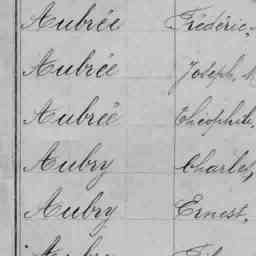 Aubrée Frédéric,
Aubrée Joseph,
Aubrée Théophile,
Aubry Charles,
Aubry Ernest,